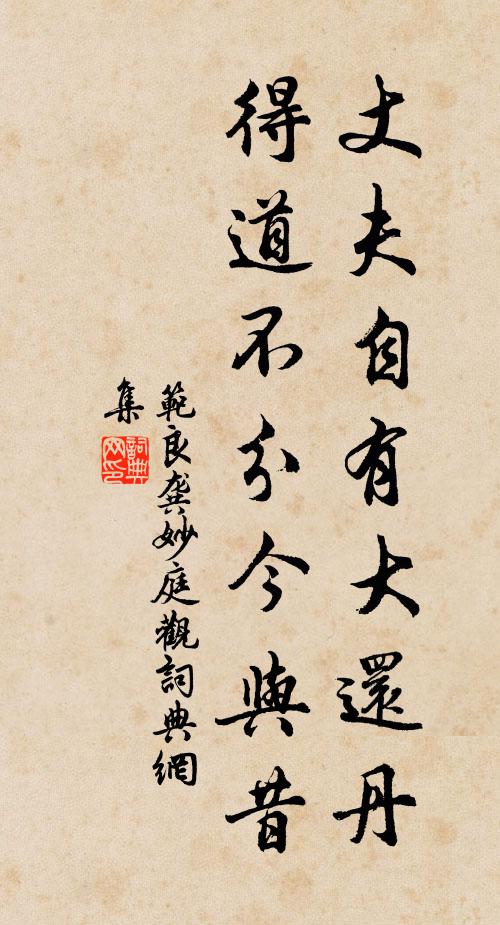 丈夫自有大還丹
得道不分今與昔
範良龔妙庭觀詞典網
集
詞典
网印